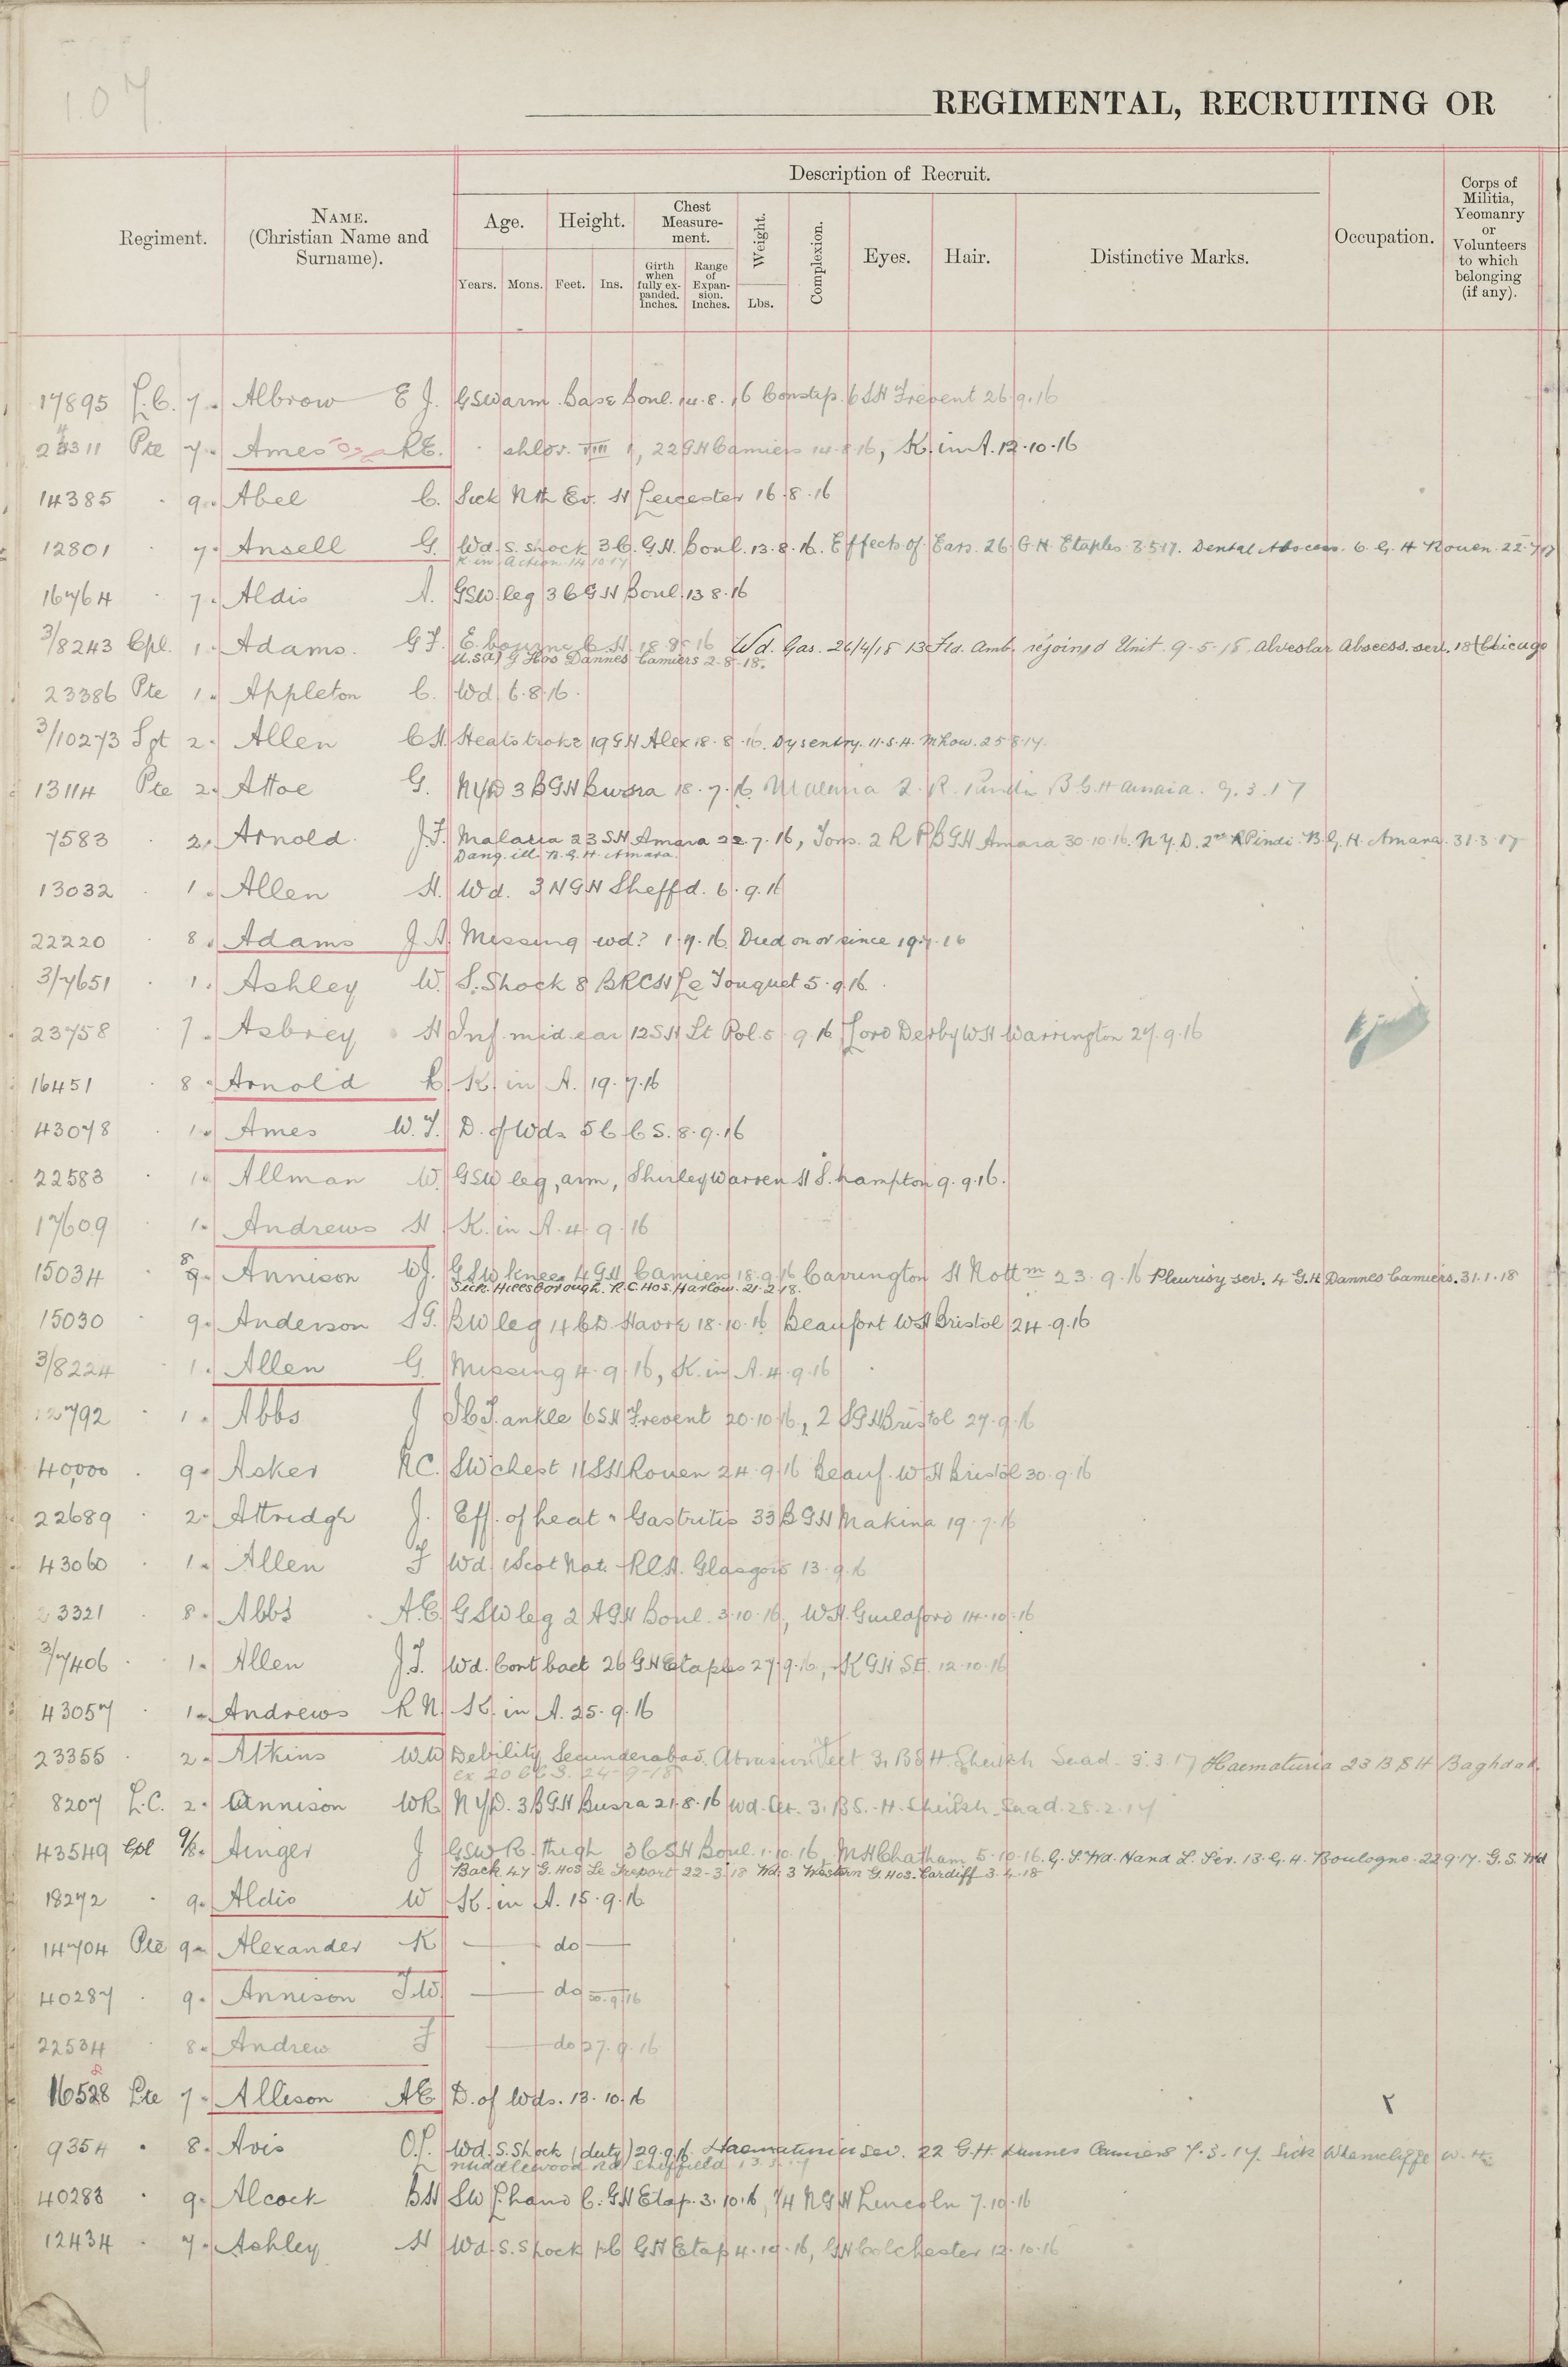 107
REGIMENTAL, RECRUITING OR
Description of Recruit.
Regiment.
NAME.
(Christian Name and
Surname).
Age.
Height.
Chest
Measure-
ment.
Weight.
Complexion.
Eyes.
Hair.
Distinctive Marks.
Occupation.
Corps of
Militia,
Yeomanry
or
Volunteers
to which
belonging
(if any).
Years.
Mons.
Feet.
Ins.
Girth
when
fully ex-
panded.
Inches.
Range
of
Expan-
sion.
Inches.
Lbs.
17895 L.C. 7. Albrow E J. GSW arm Base Boul. 14.8.16 6 SH Frevent 26.9.16
Pte 7. Ames R E. 22 GH Camiers 14.8.16, K. in A. 12.10.16
14385 . 9. Abel C. Sick Nth Ev. H Leicester 16.8.16
12801 . 7. Ansell G. Wd. S. Shock 3 C. G.H. Boul. 13.8.16. Effects of Gas. 26 G.H. Etaples 8.5.17. Dental Abscess. 6. G. H Rouen. 22.7.17
K in Action 14.10.17
16764 . 7. Aldis A. GSW. leg 3 C G H Boul. 13.8.16
3/8243 Cpl. 1. Adams. G F. E.bourne C. H. 18.8.16 Wd. Gas. 26/4/18 13 Fld. Amb. rejoined Unit 9-5-18. Alveolar Abscess. sev. 18 (Chicago
U.S.A) G Hos Dannes Camiers 2-8-18.
23386 Pte 1. Appleton C. Wd. 6.8.16.
3/10273 Sgt 2. Allen C H. Heatstroke 19 G H Alex 18.8.16. Dysentry. 11.S.H. Mhow. 25.8.17.
13114 Pte 2. Attoe G. NYD 3 B G H Busra 18.7.16. Malaria 2. R. Pindi B G. H Amara. 9.3.17
7583 . 2. Arnold. J.F. Malaria 23 SH Amara 22.7.16, Tons. 2 R P B G H Amara 30.10.16. N.Y.D. 2nd R Pindi B.G.H. Amara. 31.3.17
Dang. ill. B. G. H. Amara.
13032 . 1. Allen H. Wd. 3 N G H Sheffd. 6.9.16
22220 . 8. Adams J A. Missing wd? 1.9.16 Died on or since 19.7.16
3/7651 . 1. Ashley W. S. Shock 8 BRCH Le Touquet 5.9.16.
23758 . 7. Asbrey H Inf. mid. ear 12 S H St Pol. 5.9.16 Lord Derby W H Warrington 27.9.16
16451 . 8. Arnold K. in A. 19.7.16
43078 . 1. Ames W. T. D. of Wds 5 C C S. 8.9.16
22583 . 1. Allman W. GSW leg, arm, Shirley Warren H S.hampton 9.9.16.
17609 . 1. Andrews H K. in A. 4.9.16
15034 . 8 9. Annison W J. GSW knees 4 G H Camiers 18.9.16 Carrington H Nottm 23.9.16 Pleurisy sev. 4 G.H. Dannes Camiers. 31.1.18
Sick. Hillsborough. R.C. Hos. Harlow. 21.2.18.
15030 . 9. Anderson S G. BW leg Havre 18.10.16 Beaufort W H Bristol 24.9.16
3/8224 . 1. Allen G. Missing 4.9.16, K. in A. 4.9.16
12792 . 1. Abbs J ankle 6 S H Frevent 20.10.16, 2 S G H Bristol 27.9.16
40,000 . 9. Asker R C. SW chest 11 S H Rouen 24.9.16 Beauf. W H Bristol 30.9.16
22689 . 2. Attridge J. Eff. of heat Gastritis 33 B G H Makina 19.7.16
43060 . 1. Allen F Wd. 1 Scot Nat. RCH. Glasgow 13.9.16
23321 . 8. Abbs A. E. GSW leg 2 A G H Boul. 3.10.16, W H. Guildford 14.10.16
3/7406 . 1. Allen J. T. Wd. Cont back 26 G H Etaples 27.9.16, K G H SE. 12.10.16
43057 . 1. Andrews R N. K. in A. 25.9.16
23355 . 2. Atkins W W Debility Secunderabad. Abrasion Feet 31 B S H. Sheikh Saad. 3.3.17 Haematuria 23 B S H Baghdad.
ex 20 C C S. 24-9-18
8207 L.C. 2. Annison W R. N.Y.D. 3 B G H Busra 21.8.16 Wd. 31 B S. H. Sheikh Saad. 25.2.17
43549 Cpl 9/8. Ainger J GSW R. thigh 3 C S H Boul. 1.10.16, M H Chatham 5.10.16. G. S. Wd. Hand L. Sev. 13. G. H. Boulogne. 22.9.17. G. S. Wd
Back. 47 G. Hos. Le Treport 22-3-18 Wd. 3 Western G. Hos. Cardiff 3.4.18
18272 . 9. Aldis W K. in A. 15.9.16
14704 Pte 9. Alexander K do
40287 . 9. Annison F W. do 30.9.16
22534 . 8. Andrew F do 27.9.16
16528 Pte 7. Allison A E D. of Wds. 13.10.16
9354 . 8. Avis O.P. Wd. S. Shock (duty) 29.9.16. Haematuria sev. 22 G.H. Dannes Camiers 7.3.17. Sick Wharncliffe W. H.
Middlewood Rd Sheffield
40288 . 9. Alcock B H SW L. hand C. G H Etap. 3.10.16, 1/4 N G H Lincoln 7.10.16
12434 . 7. Ashley H Wd. S. Shock G H Etap 4.10.16, Colchester 12.10.16